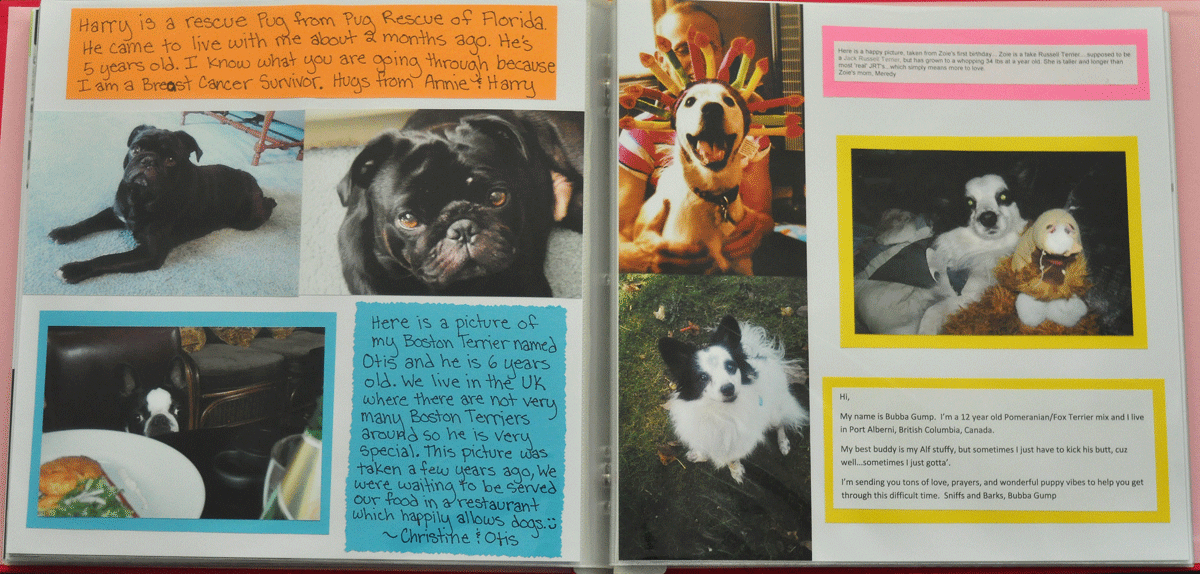 Harry is a rescue Pug from Pug Rescue of Florida.
He came to live with me about 2 months ago. He's
5 years old. I know what you are going through because
I am a Breast Cancer Survivor. Hugs from Annie & Harry
Here is a picture of
my Boston Terrier named
Otis and he is 6 years
old. We live in the UK
where there are not very
many Boston Terriers
around so he is very
special. This picture was
taken a few years ago, we
were waiting to be served
our food in a restaurant
which happily allows dogs.
~Christine & Otis
Here is a happy picture, taken from Zoie's first birthday... Zoie is a fake Russell Terrier....supposed to be
a Jack Russell Terrier, but has grown to a whopping 34 lbs at a year old. She is taller and longer than
most 'real' JRT's...which simply means more to love.
Zoie's mom, Meredy
Hi,
My name is Bubba Gump. I'm a 12 year old Pomeranian/Fox Terrier mix and I live
in Port Alberni, British Columbia, Canada.
My best buddy is my Alf stuffy, but sometimes I just have to kick his butt, cuz
well...sometimes I just gotta'.
I'm sending you tons of love, prayers, and wonderful puppy vibes to help you get
through this difficult time. Sniffs and Barks, Bubba Gump